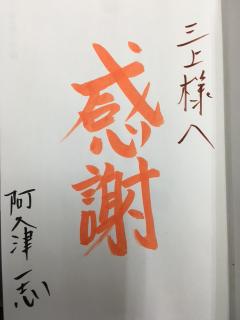 三上様へ
感謝
阿久津一志